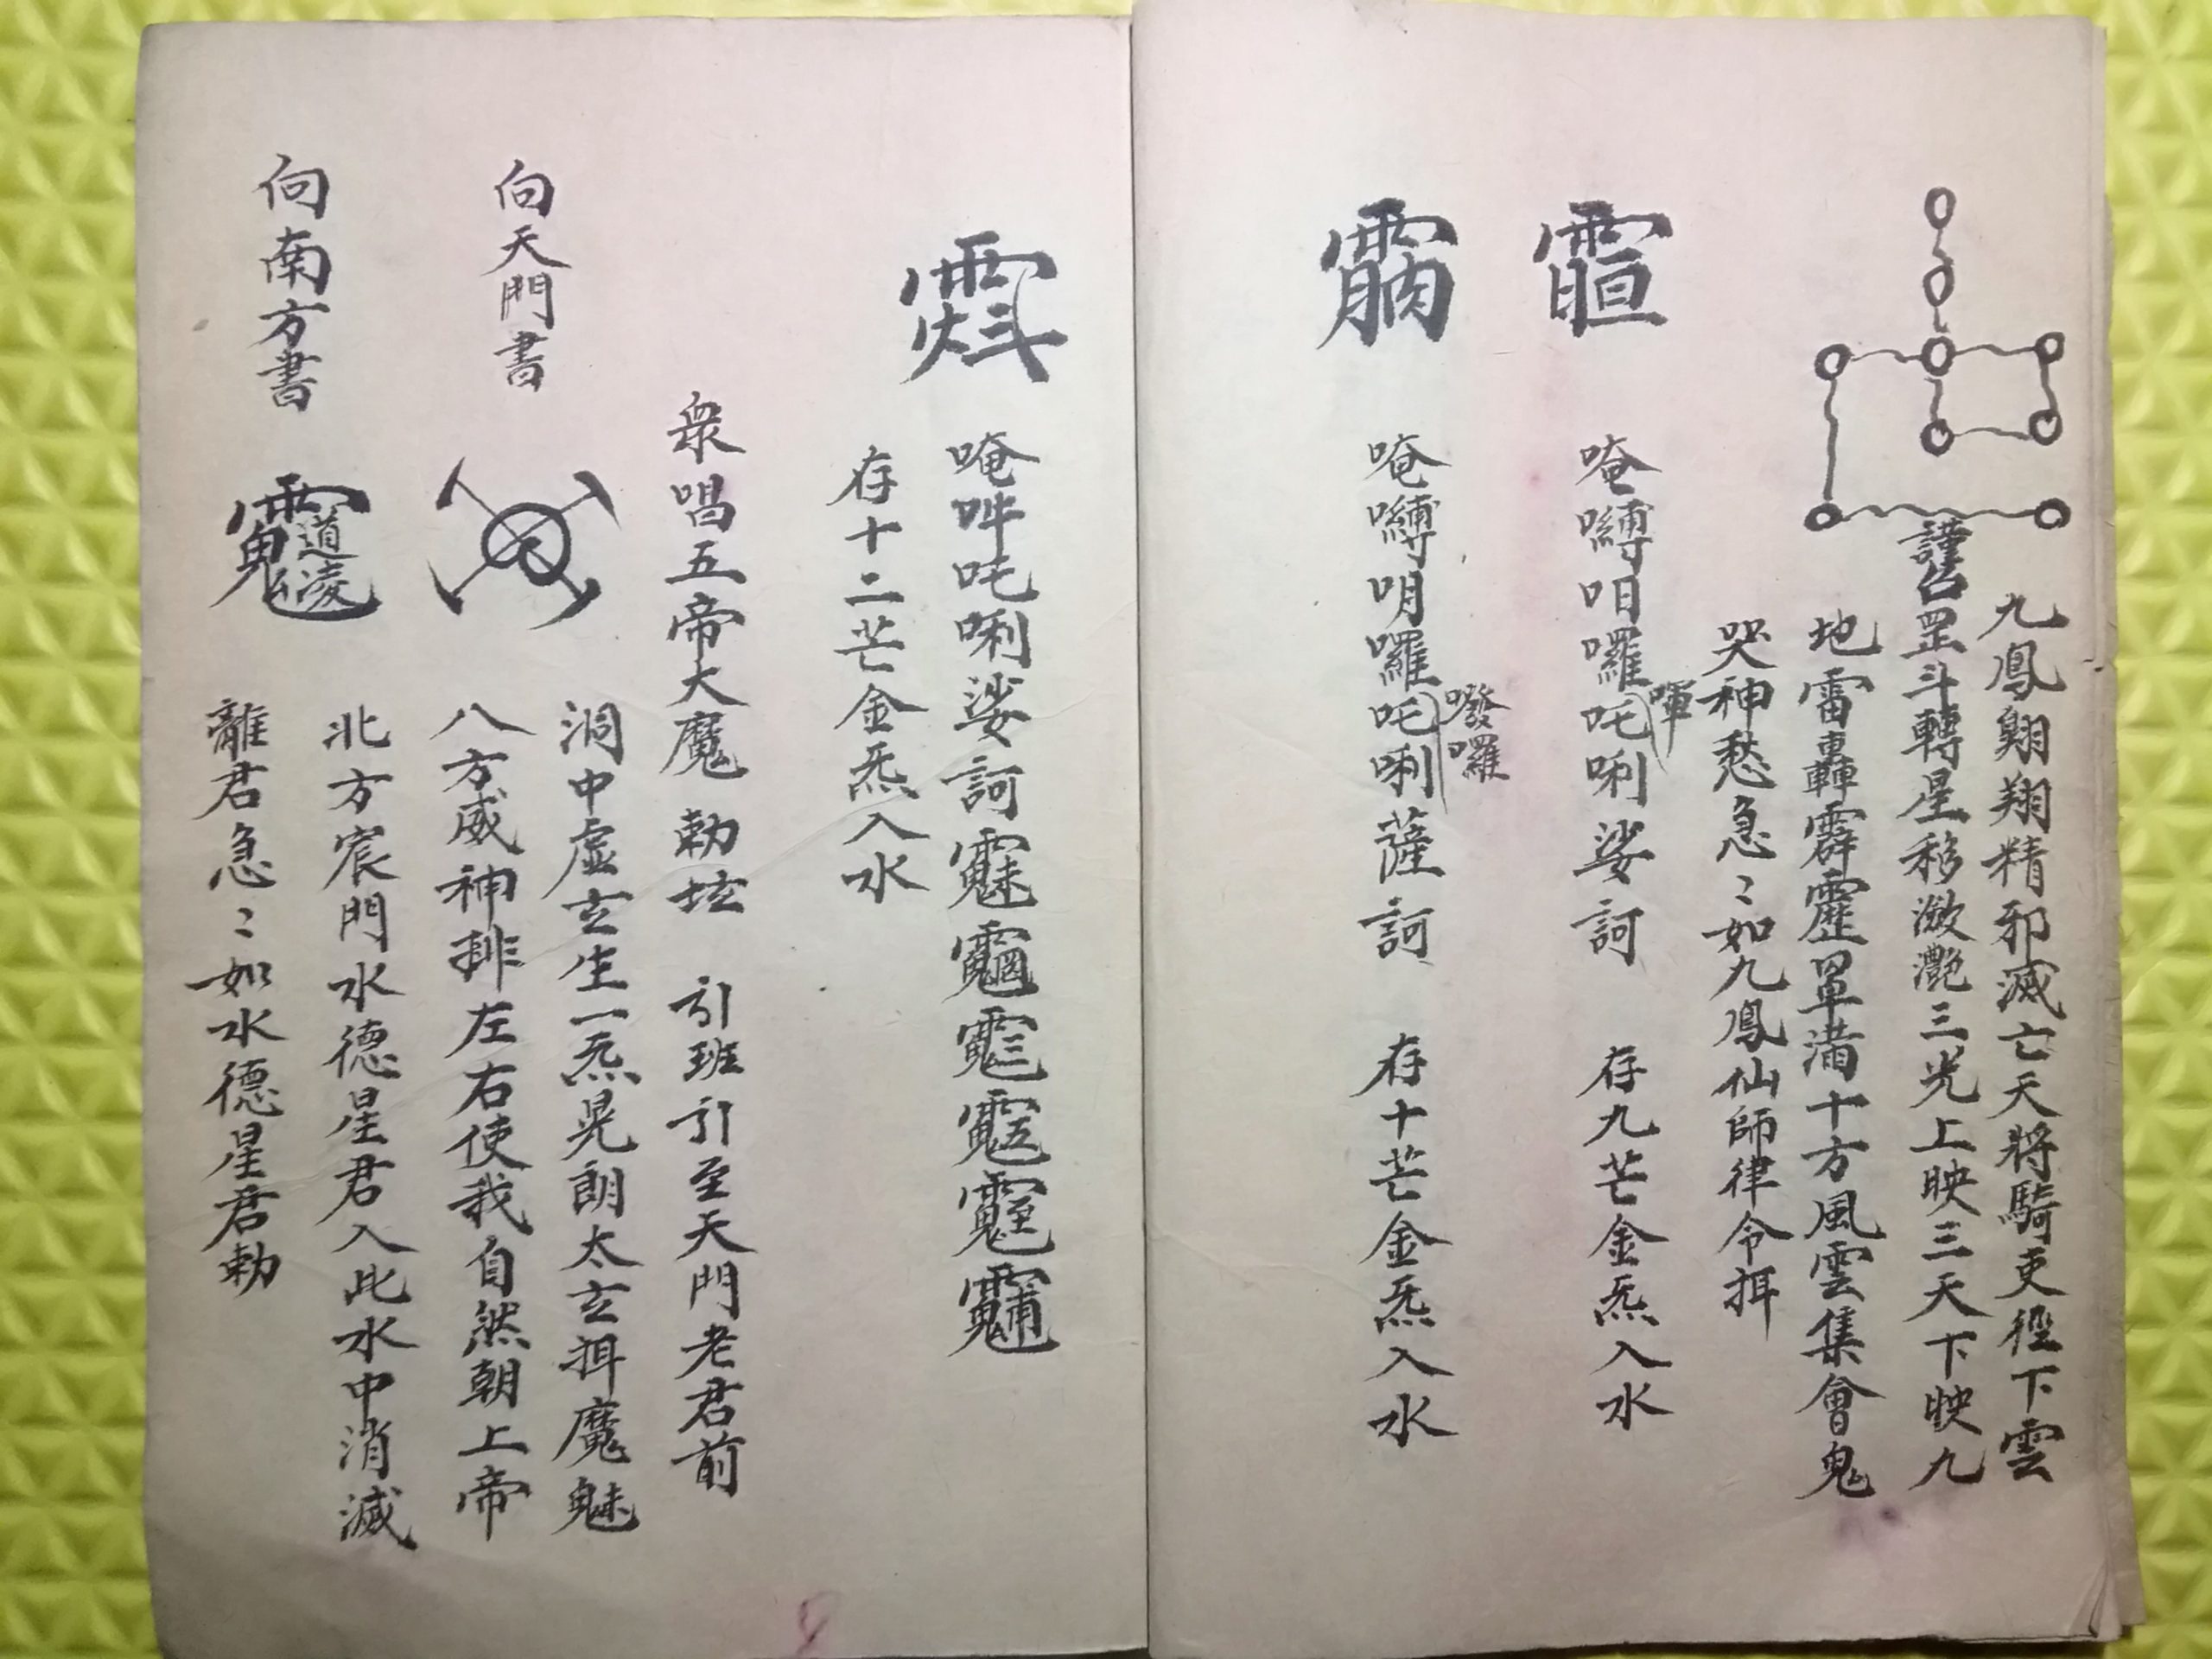 九鳳翺翔精邪滅亡天將騎吏徑下雲
謹召罡斗轉星移潋灔三光上映三天下映九
地雷轟霹靂罩滿十方風雲集會鬼
哭神愁急〻如九鳳仙師律令揖
唵嚩呾囉吒唎娑訶 存九芒金炁入水
㖞
唵嚩明囉吒唎薩訶 存十芒金炁入水
嘬囉
唵吽吒唎娑訶
存十二芒金炁入水
衆唱五帝大魔 勅坛 引班引至天門老君前
向天門書
洞中虛玄生一炁晃朗太玄揖魔魅
八方威神排左右使我自然朝上帝
向南方書
道凌
北方宸門水德星君入此水中消滅
離君急〻如水德星君勅